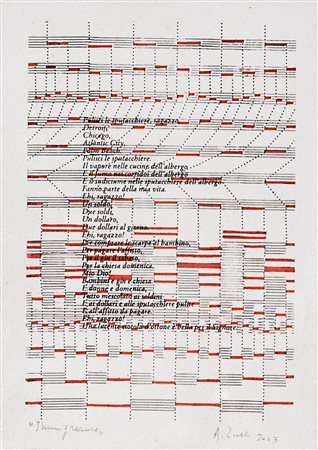 Pulisci le sputacchiere, ragazzo.
Detroit,
Chicago,
Atlantic City,
Palm Beach.
Pulisci le sputacchiere.
Il vapore nelle cucine dell'albergo,
E il fumo nei corridoi dell'albergo
E il sudiciume nelle sputacchiere dell'albergo:
Fanno parte della mia vita.
Ehi, ragazzo!
Un soldo,
Due soldi,
Un dollaro,
Due dollari al giorno.
Ehi, ragazzo!
Per comprare le scarpe al bambino,
Per pagare l'affitto,
Per il gin il sabato,
Per la chiesa domenica.
Mio Dio!
Bambini e gin e chiesa
E donne e domenica,
Tutto mescolato ai soldini
E ai dollari e alle sputacchiere pulite
E all'affitto da pagare.
Ehi, ragazzo!
Una lucente ciotola d'ottone è bella per il Signore.
"Immigrazione"
A. 2003